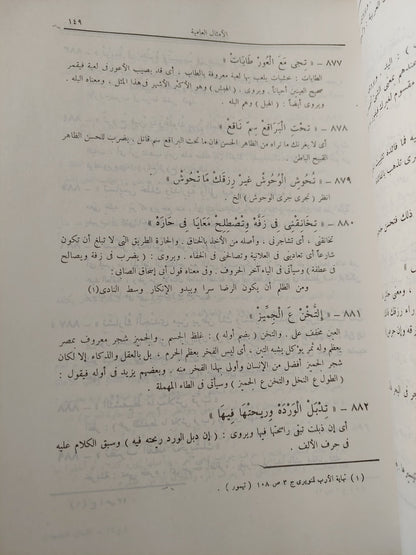 الأمثال العامية
١٤٩
٨٧٧ – « تِجِى مَعَ الْعُورْ طَابَاتْ »
الطابات : خشبات يلعب بها لعبة معروفة بالطاب . أى قد يصيب الأعور فى لعبة فيقمر
صحيح العينين أحياناً . ويروى : (الهبل) وهو الأكثر الأشهر فى هذا المثل . ومعناه البله .
ويروى أيضاً : (الهبل) وهم البله .
٨٧٨ – « تَحْتِ الْبَرَاقِعْ سِمّ نَاقِعْ »
أى لا يغرنك ما تراه من الظاهر الحسن فإن ما تحت البراقع سم قاتل . يضرب للحسن الظاهر
القبيح الباطن .
٨٧٩ – « تْحُوشِ الْوُحُوشْ غِيرْ رِزْقَكْ مَا تْحُوشْ »
انظر (تجرى جرى الوحوش) الخ .
٨٨٠ – « تِخَانِقْنِى فِى زَفَّهْ وِتِصْطِلِحْ مَعَايَا فِى حَارَهْ »
تخانقنى . أى تشاجرنى . وأصله من الأخذ بالخناق . والحارة الطريق التى لا تبلغ أن تكون
شارعاً أى تعادينى فى العلانية وتصالحنى فى الخفاء . ويروى : ( يضرب فى زفة ويصالح
فى عطفة ) وسيأتى فى الياء آخر الحروف . وفى معناه قول أبى إسحاق الصابى :
ومن الظلم أن يكون الرضا سرا ويبدو الإنكار وسط النادى(١)
٨٨١ – « اِلتُّخْنْ عَ الْجِمِّيزْ »
العين مخفف على . والتخن ( بضم أوله ) : غلظ الجسم . والجميز شجر معروف بمصر
يعظم وله ثمر يؤكل يشبه التين . أى ليس الفخر بعظم الجرم . بل بالعقل والذكاء إلا لكان
شجر الجميز أفضل من الإنسان وأولى بهذا الفخر منه . وبعضهم يزيد فى أوله فيقول :
( الطول ع النخل والتخن ع الجميز ) وسيأتى فى الطاء المهملة .
٨٨٢ – « تِدْبَلِ الْوَرْدَهْ وِرِيحِتْهَا فِيهَا »
أى إن ذبلت تبقى رائحتها فيها ويروى : ( إن دبل الورد ريحته فيه ) وسبق الكلام عليه
فى حرف الألف .
(١) نهاية الأرب للنويرى ج ٣ ص ١٠٨ ( تيمور ) .